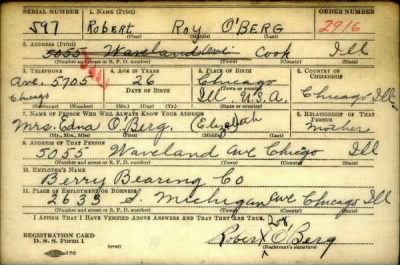 SERIAL NUMBER 1. NAME (Print) ORDER NUMBER
597 Robert Roy O'Berg 2916
2. ADDRESS (Print)
5055 Waveland Ave Cook Ill
3. TELEPHONE 4. AGE IN YEARS 5. PLACE OF BIRTH 6. COUNTRY OF CITIZENSHIP
Ave. 5705 26 Chicago
DATE OF BIRTH Ill. U.S.A. Chicago Ill
7. NAME OF PERSON WHO WILL ALWAYS KNOW YOUR ADDRESS 8. RELATIONSHIP OF THAT PERSON
Mrs. Edna O'Berg. Elizabeth mother
(Mr., Mrs., Miss) (First) (Middle) (Last)
9. ADDRESS OF THAT PERSON
5055 Waveland Ave Chicgo Ill
10. EMPLOYER'S NAME
Berry Bearing Co
11. PLACE OF EMPLOYMENT OR BUSINESS
2635 S. Michigan Ave Chicago Ill
I AFFIRM THAT I HAVE VERIFIED ABOVE ANSWERS AND THAT THEY ARE TRUE.
REGISTRATION CARD Robert Roy O'Berg
D. S. S. Form 1 (Registrant's signature)